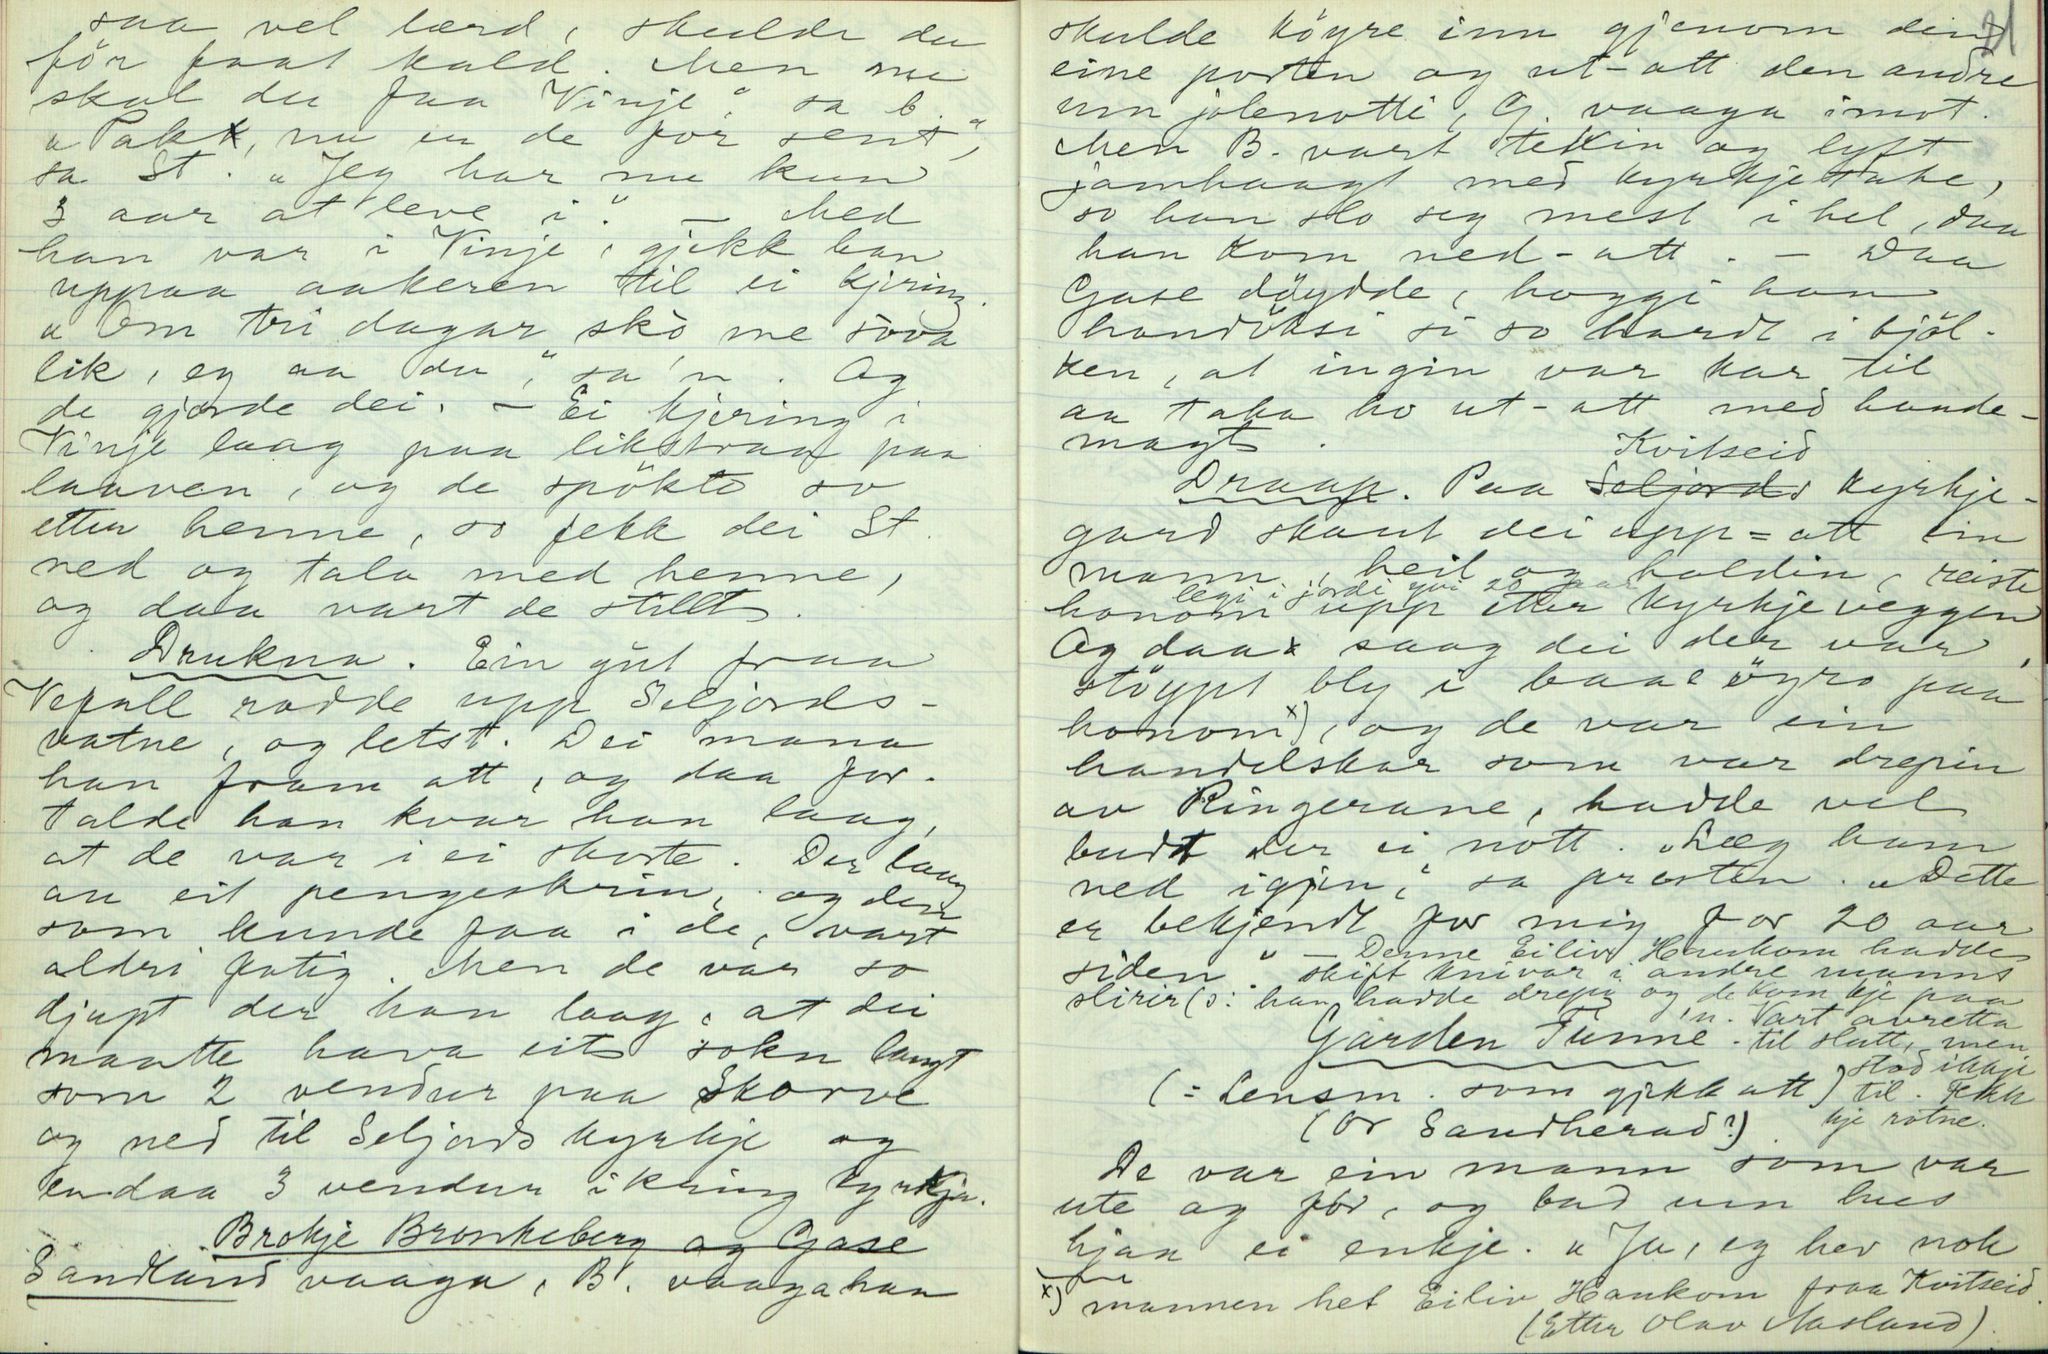 saa vel lærd, skulde du
för faat kald. Men nu
skal du faa Vinje", sa b.
"Takk, nu er de för sent",
sa St. "Jeg har nu kun
3 aar at leve i." — Med
han var i Vinje, gjekk han
uppaa aakeren til ei kjering.
"Om tri dagar sko me sova
lik, eg aa du", sa 'n. Og
de gjorde dei. — Ei kjering i
Vinje laag paa likstraa paa
laaven, og de spökte so
etter henne, so fekk dei St.
ned og tala med henne,
og daa vart de stillt.
Drukna. Ein gut fraa
Vefall rodde upp Seljords-
vatne, og letst. Dei mana
han fram att, og daa for-
talde han kvar han laag,
at de var i ei skorte. Der laag
au eit pengeskrin, og den
som kunde faa i de, vart
aldri fatig. Men de var so
djupt der han laag, at dei
maatte hava eit sokn langt
som 2 vendur paa Skorve
og ned til Seljords kyrkje og
endaa 3 vendur ikring kyrkja.
Brokje Bronkeberg og Gase
Sandland vaaga, B. vaaga han
21
skulde köyre inn gjenom den
eine porten og ut-att den andre
um jolenotti, G. vaaga imot.
Men B. vart tekin og lyft
jamhaagt med kyrkjetake,
so han slo seg mest i hel, daa
han kom ned-att. — Daa
Gase döydde, hoggi han
handöksi si so hardt i bjöl-
ken, at ingin var kar til
aa taka ho ut-att med hande-
magt.
Kvitseid
Draap. Paa Seljords kyrkje-
gard skaut dei upp-att ein
mann, heil og haldin, reiste
legi i jordi yvi 20 aar
honom upp etter kyrkjeveggen
Og daa saag dei der var
stöypt bly i baae öyro paa
honom x), og de var ein
handelskar som var drepin
av Ringerane, hadde vel
budt der ei nott. "Læg ham
ned igjen", sa presten. "Dette
er bekjendt for mig for 20 aar
siden." — Denne Eiliv Haukom hadde
skift knivar i andre manns
slirir (ɔ: han hadde drepi og de kom kje paa
'n. Vart avretta
Garden Tunne. til slutt, men
stod ikkje
(= Lensm. som gjekk att) til. Fekk
(Or Sandherad?) kje rotne.
De var ein mann som var
ute og för, og bad um hus
hjaa ei enkje. "Ja, eg hev nok
x) mannen het Eiliv Haukom fraa Kvitseid.
(Etter Olav Aasland).